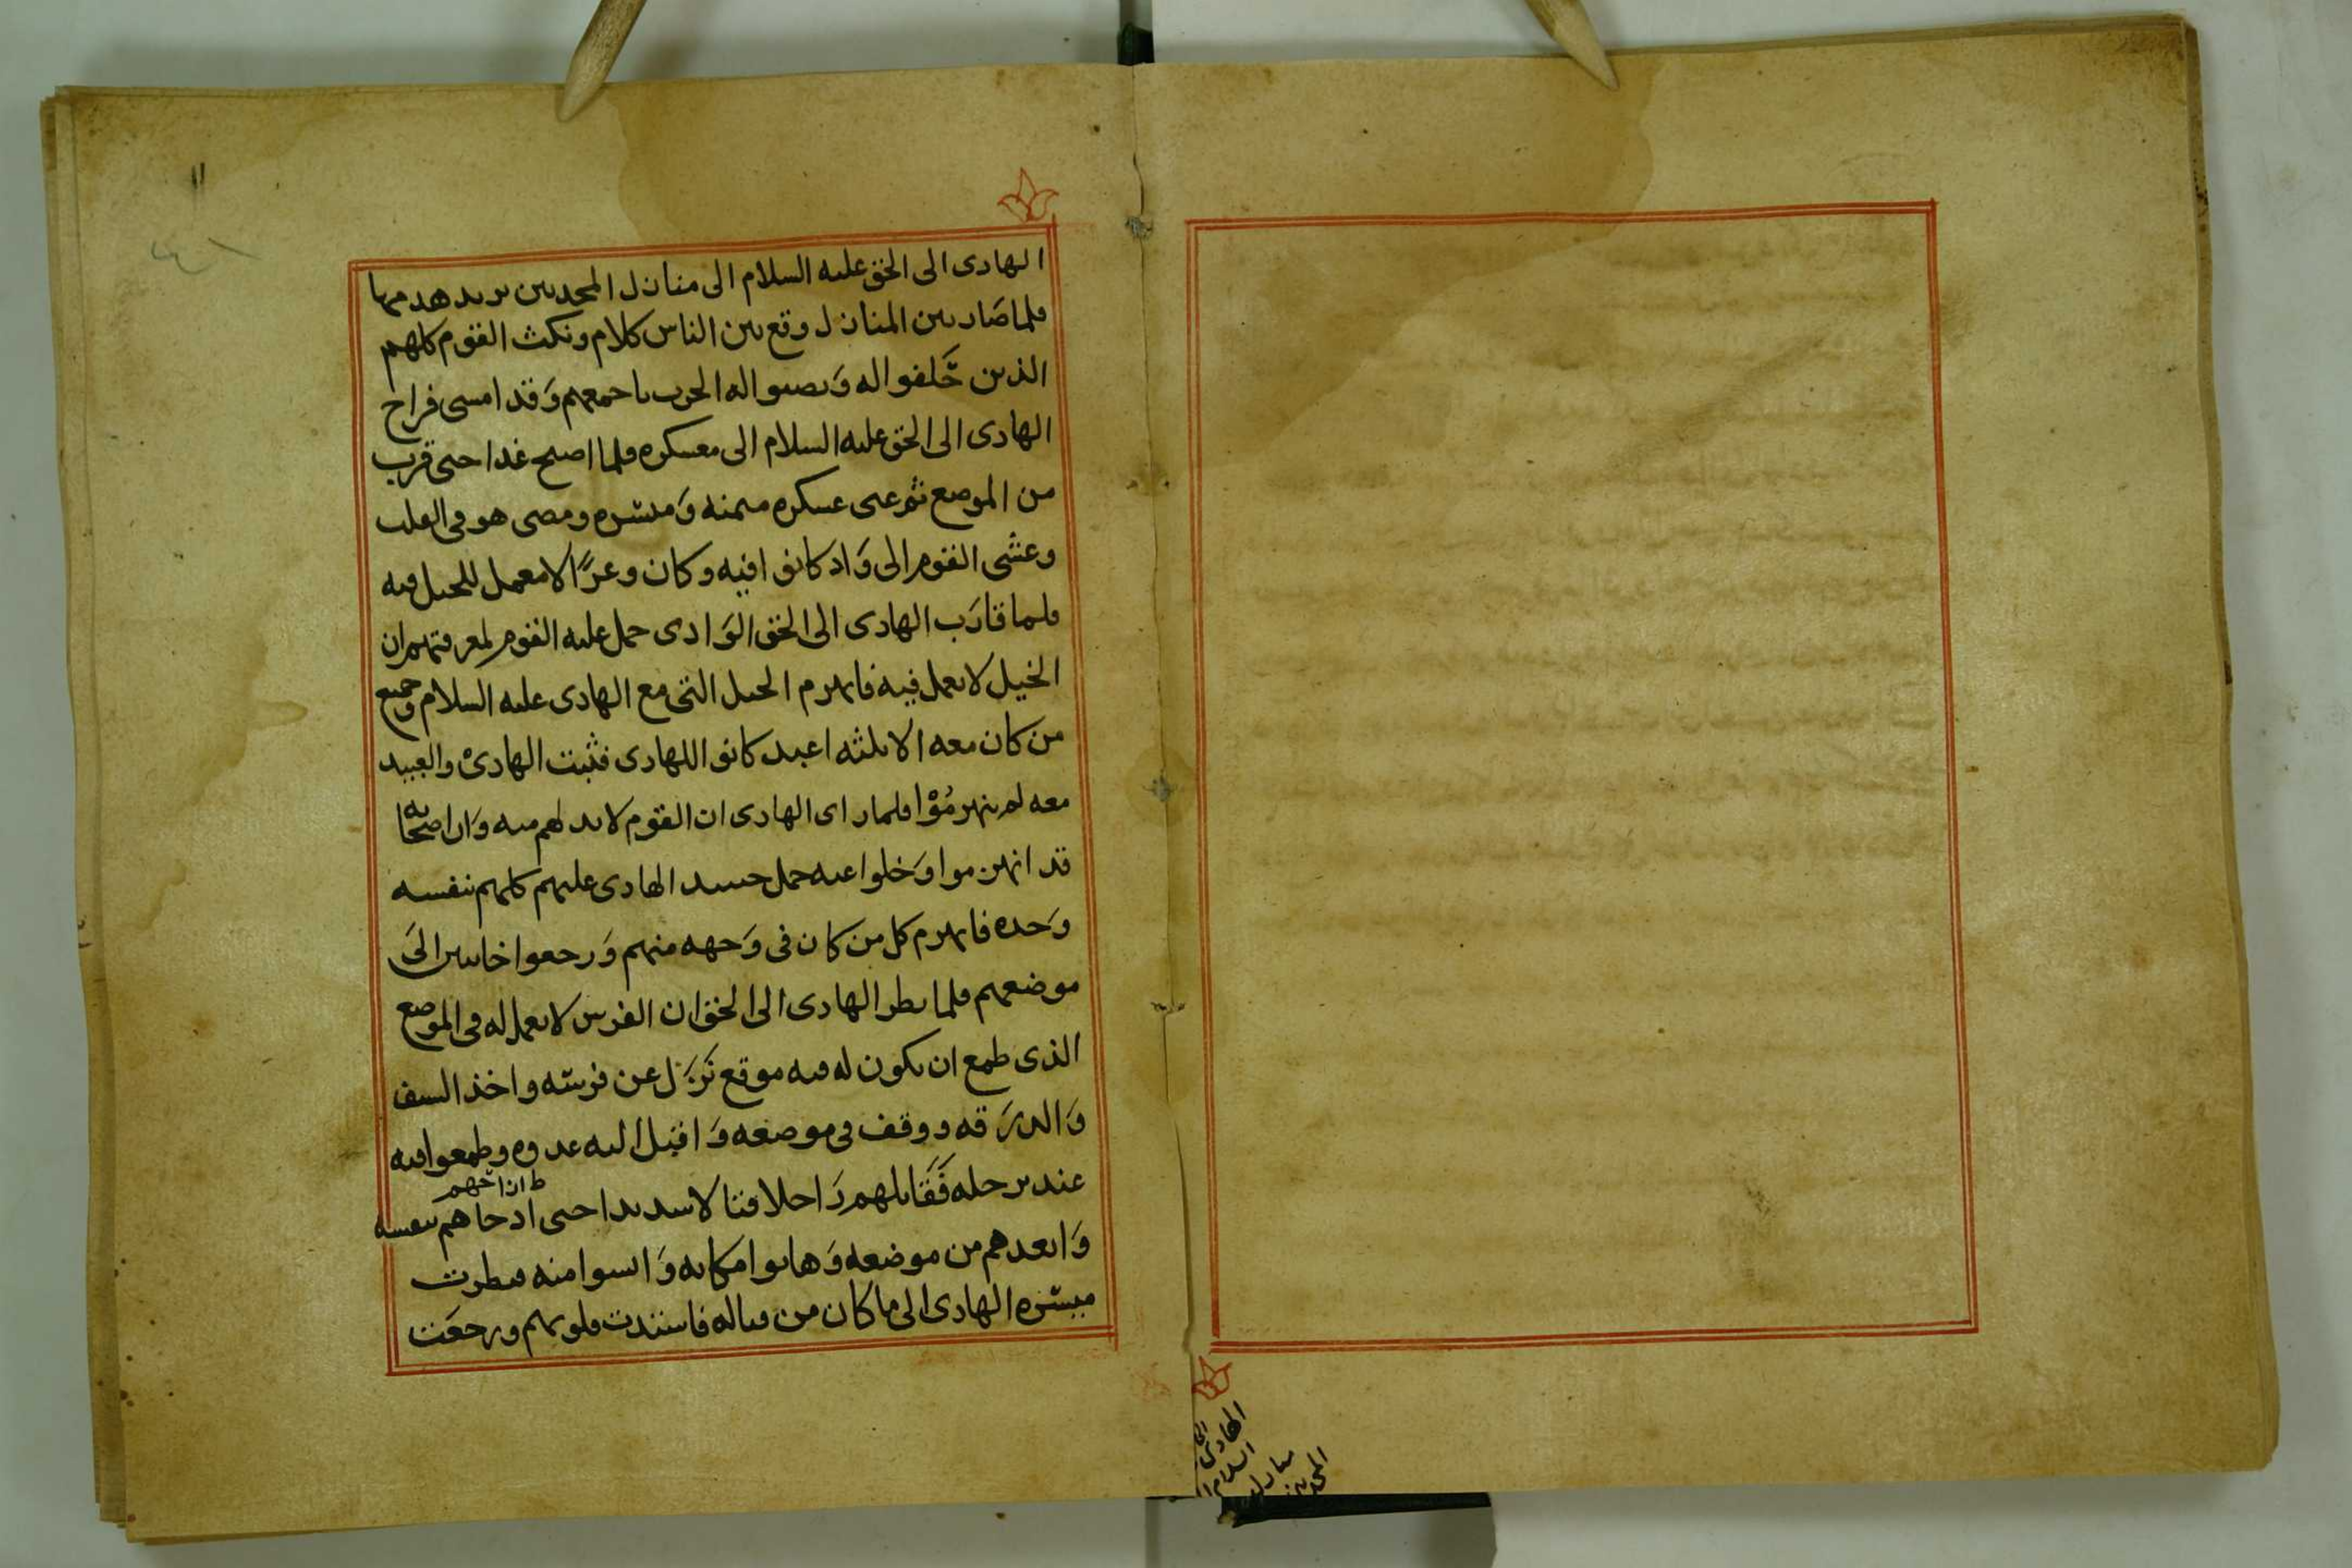 الهادى الى الحق عليه السلام الى منازل المحدثين يريد هدمها
فلما صَار بين المنازل وقع بين الناس كلام ونكث القوم كلهم
الذين حَّلفوا له وَنصبوا له الحرب باجمعهم وَقد امسى فراح
الهادى الى الحق عليه السلام الى معسكره فلما اصبح غدا حتى قرب
من الموضع ثم عبى عسكره ميمنه وَميسره ومضى هو فى القلب
وعشى القوم الى وَاد كانوا فيه وكان وعرًا لا معمل للخيل فيه
فلما قارَب الهادى الى الحق الوَادى حمل عليه القوم لمعرفتهم ان
الخيل لا تعمل فيه فانهزم الخيل التى مع الهادى عليه السلام وجميع
من كان معه الا ثلثه اعبد كانوا للهادى فثبت الهادىْ والعبيد
معه لم ينهزمُوْا فلما راى الهادى ان القوم لا بد لهم منه وَان اصحابه
قد انهزموا وَخلوا عنه حمل حينيد الهادى عليهم كلهم بنفسه
وَحده فانهزم كل من كان فى وَجهه منهم وَرجعوا خايبين الىَ
موضعهم فلما نظر الهادى الى الحق ان الفرس لا تعمل له فى الموضع
الذى طمع ان يكون له فيه موقع نَزَل عن فرسه واخذ السيف
وَالدرَقه ووقف فى موضعه وَاقبل اليه عدوه وطمعوا فيه
عند ترجله فَقَاتلهم رَاجلا قتالا شديدا حتى ادحاهم بنفسه
ط ازاحهم
وَابعدهم من موضعه وَهابوا مكانه وَايسوا منه فنظرت
ميسره الهادى الى ما كان من فعاله فاشتدت قلوبهم ورجعَت
الهادى الى
السلام ا
منازل
المحدثين